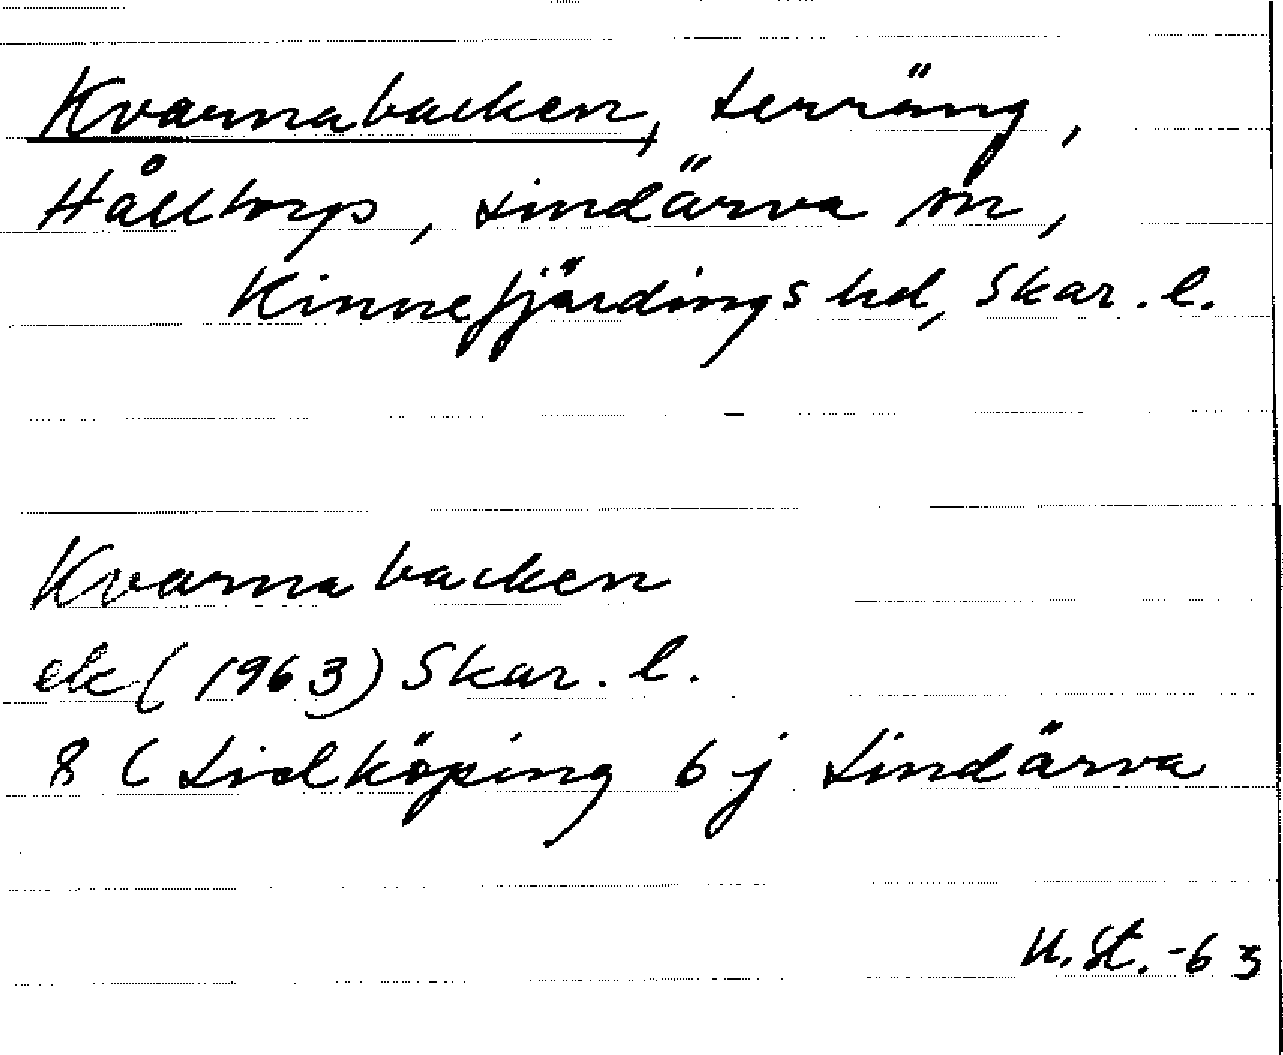 Kvarnabacken, terräng,
Hålltorp, Lindärva sn,
Kinnefjärdings hd, Skar. l.
Kvarnabacken
ek (1963) Skar. l.
8 C Lidköping 6 j Lindärva
U. St. -63